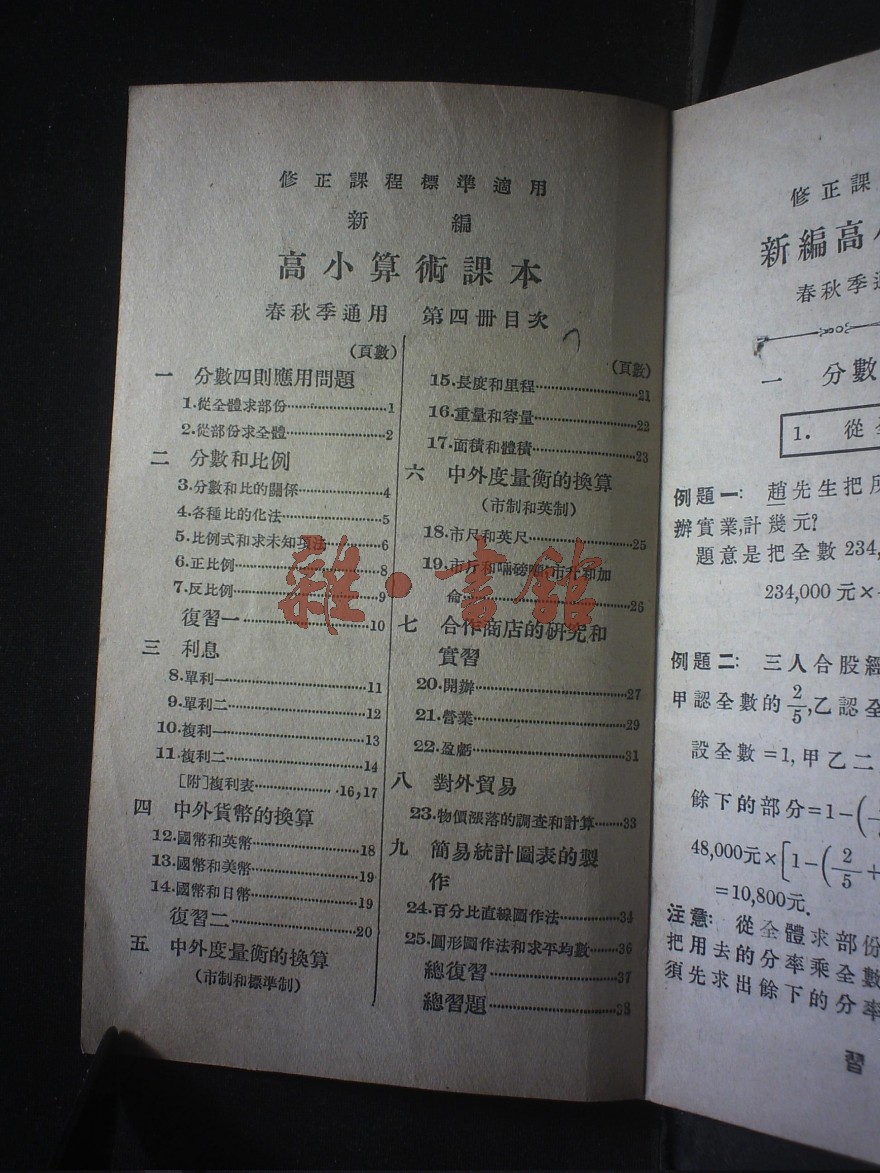 修正課程標準適用
新編
高小算術課本
春秋季通用 第四册目次
(頁數)
一 分數四則應用問題
1.從全體求部份……1
2.從部份求全體……2
二 分數和比例
3.分數和比的關係……4
4.各種比的化法……5
5.比例式和求未知項法……6
6.正比例……8
7.反比例……9
復習一……10
三 利息
8.單利一……11
9.單利二……12
10.複利一……13
11.複利二……14
[附]複利表……16,17
四 中外貨幣的換算
12.國幣和英幣……18
13.國幣和美幣……19
14.國幣和日幣……19
復習二……20
五 中外度量衡的換算
(市制和標準制)
(頁數)
15.長度和里程……21
16.重量和容量……22
17.面積和體積……23
六 中外度量衡的換算
(市制和英制)
18.市尺和英尺……25
19.市斤和啢磅噸,市升和加
侖……26
七 合作商店的研究和
實習
20.開辦……27
21.營業……29
22.盈虧……31
八 對外貿易
23.物價漲落的調查和計算……33
九 簡易統計圖表的製
作
24.百分比直線圖作法……34
25.圓形圖作法和求平均數……36
總復習……37
總習題……38
雜·書館
修正課
新編高小
春秋季通
一 分數
1. 從全
例題一: 趙先生把
辦實業,計幾元?
題意是把全數234,
234,000元×
例題二: 三人合股經
甲認全數的2/5,乙認全
設全數=1,甲乙二
餘下的部分=1-(
48,000元×[1-(2/5+
=10,800元.
注意: 從全體求部份
把用去的分率乘全數
須先求出餘下的分率
習